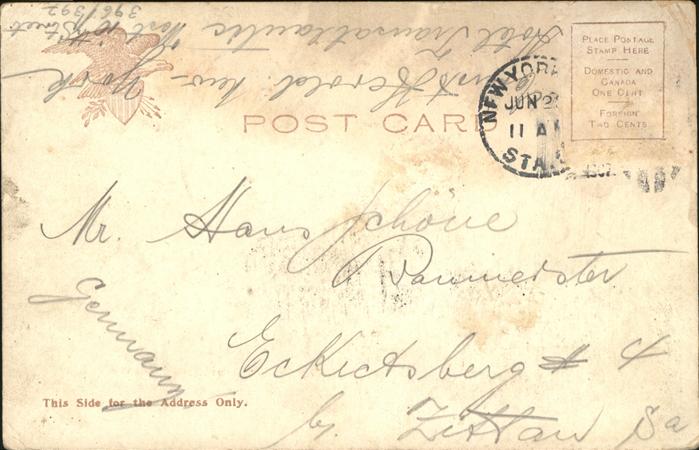 396/392
West 10th Street
Hotel Transatlantic
Herold New-York
POST CARD
PLACE POSTAGE
STAMP HERE
DOMESTIC AND
CANADA
ONE CENT
FOREIGN
TWO CENTS
NEW YORK
JUN 2
11 A
STA.
1907
Mr. Hans Schöne
Baumeister
Germany
Eckartsberg # 4
by Zittau Sa
This Side for the Address Only.